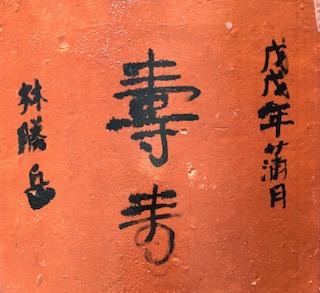 戊戌年蒲月
壽
林勝岳